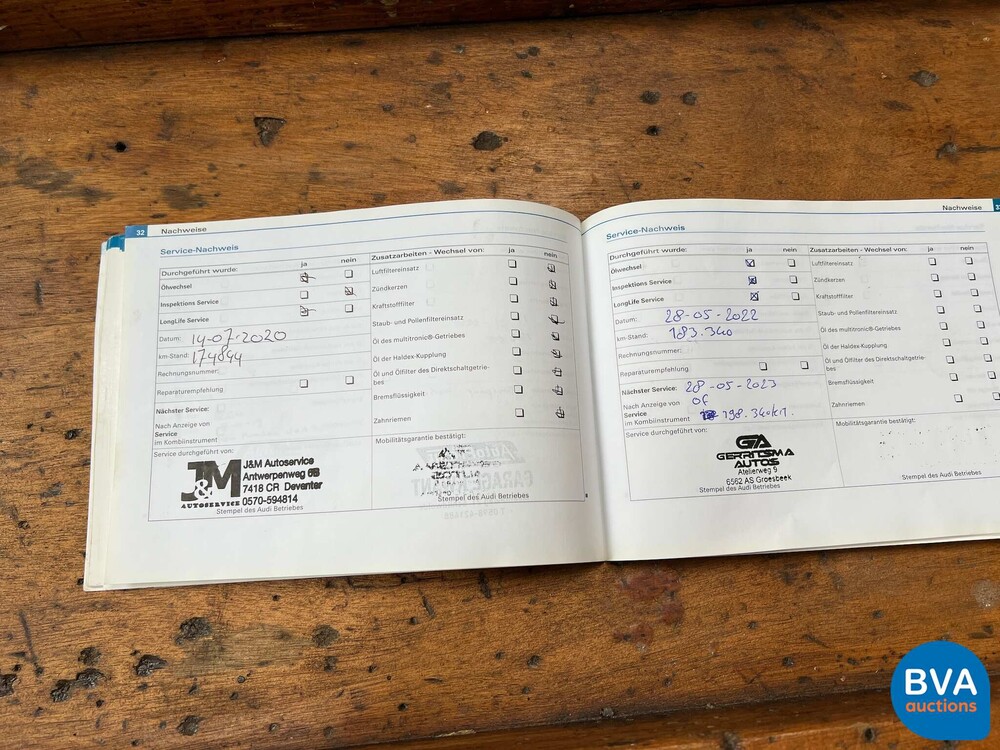 32 Nachweise
Service-Nachweis
Durchgeführt wurde: ja nein
Ölwechsel
Inspektions Service
LongLife Service
Datum: 14-07-2020
km-Stand: 174844
Rechnungsnummer:
Reparaturempfehlung
Nächster Service:
Nach Anzeige von
Service
im Kombiinstrument
Service durchgeführt von:
J&M Autoservice
Antwerpenweg 6B
7418 CR Deventer
0570-594814
J&M
AUTOSERVICE
Stempel des Audi Betriebes
Zusatzarbeiten - Wechsel von: ja nein
Luftfiltereinsatz
Zündkerzen
Kraftstofffilter
Staub- und Pollenfiltereinsatz
Öl des multitronic®-Getriebes
Öl der Haldex-Kupplung
Öl und Ölfilter des Direktschaltgetrie-
bes
Bremsflüssigkeit
Zahnriemen
Mobilitätsgarantie bestätigt:
Stempel des Audi Betriebes
Nachweise
Service-Nachweis
Durchgeführt wurde: ja nein
Ölwechsel
Inspektions Service
LongLife Service
Datum: 28-05-2022
km-Stand: 183.340
Rechnungsnummer:
Reparaturempfehlung
Nächster Service: 28-05-2023
Nach Anzeige von of
Service
im Kombiinstrument 198.340km.
Service durchgeführt von:
GA
GERRITSMA
AUTOS
Atelierweg 9
6562 AS Groesbeek
Stempel des Audi Betriebes
Zusatzarbeiten - Wechsel von: ja nein
Luftfiltereinsatz
Zündkerzen
Kraftstofffilter
Staub- und Pollenfiltereinsatz
Öl des multitronic®-Getriebes
Öl der Haldex-Kupplung
Öl und Ölfilter des Direktschaltgetrie-
bes
Bremsflüssigkeit
Zahnriemen
Mobilitätsgarantie bestätigt:
Stempel des Audi Betriebes
BVA
auctions